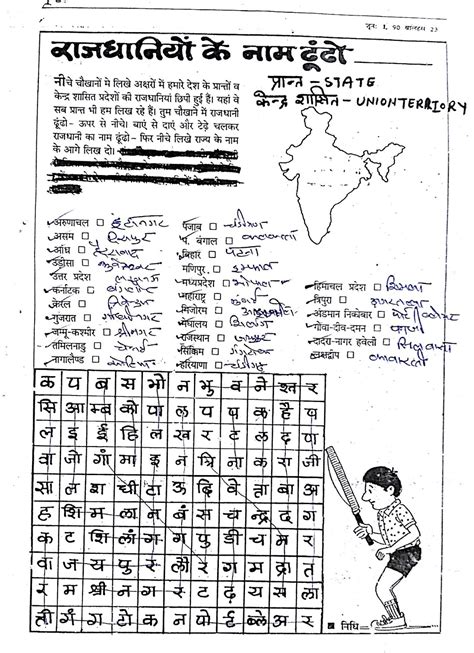 जून: I, 90 बालहंस 23
राजधानियों के नाम ढूंढो
नीचे चौखानों मे लिखे अक्षरों में हमारे देश के प्रान्तों व
केन्द्र शासित प्रदेशों की राजधानियां छिपी हुई हैं। यहां वे
सब प्रान्त भी हम लिख रहे हैं। तुम चौखाने में राजधानी
ढूंढो - ऊपर से नीचे। बाएं से दाएं और टेढ़े चलकर
राजधानी का नाम ढूंढो - फिर नीचे लिखे राज्य के नाम
के आगे लिख दो।
प्रान्त - STATE
केन्द्र शासित - UNIONTERRIORY
अरुणाचल ईटानगर
असम दिसपुर
आंध्र हैदराबाद
उड़ीसा भुवनेश्वर
उत्तर प्रदेश लखनऊ
कर्नाटक बंगलौर
केरल
गुजरात गांधीनगर
जम्मू-कश्मीर श्रीनगर
तमिलनाडु चेन्नई
नागालैण्ड कोहिमा
पंजाब चंडीगढ़
प. बंगाल कलकत्ता
बिहार पटना
मणिपुर इम्फाल
मध्यप्रदेश भोपाल
महाराष्ट्र बंबई
मिजोरम
मेघालय शिलांग
राजस्थान जयपुर
सिक्किम गंगटोक
हरियाणा चंडीगढ़
हिमाचल प्रदेश शिमला
त्रिपुरा अगरतला
अंडमान निकोबार पोर्ट ब्लेयर
गोवा-दीव-दमन पणजी
दादरा-नागर हवेली सिलवासा
लक्षद्वीप कावारत्ती
क प ब स भो न भु व ने श्व र
सि आ म्ब को पा ल प प क है प
ल इ ई हि ल ख र ट ल द ण
वा जो गां मा इ न त्रि ना क रा जी
सा ल श ची टा ऊ दि वे ता बा अ
ह शि म ला न बं स च न्द्र द ग
क ट शि लां ग ग पु डी च म र
वा ज य पु र लौ र ग म द्रा त
र म श्री न ग र ट ढ़ य स ला
त्ती गं ग टो क न पो र्ट ब्ले अ र
निधि